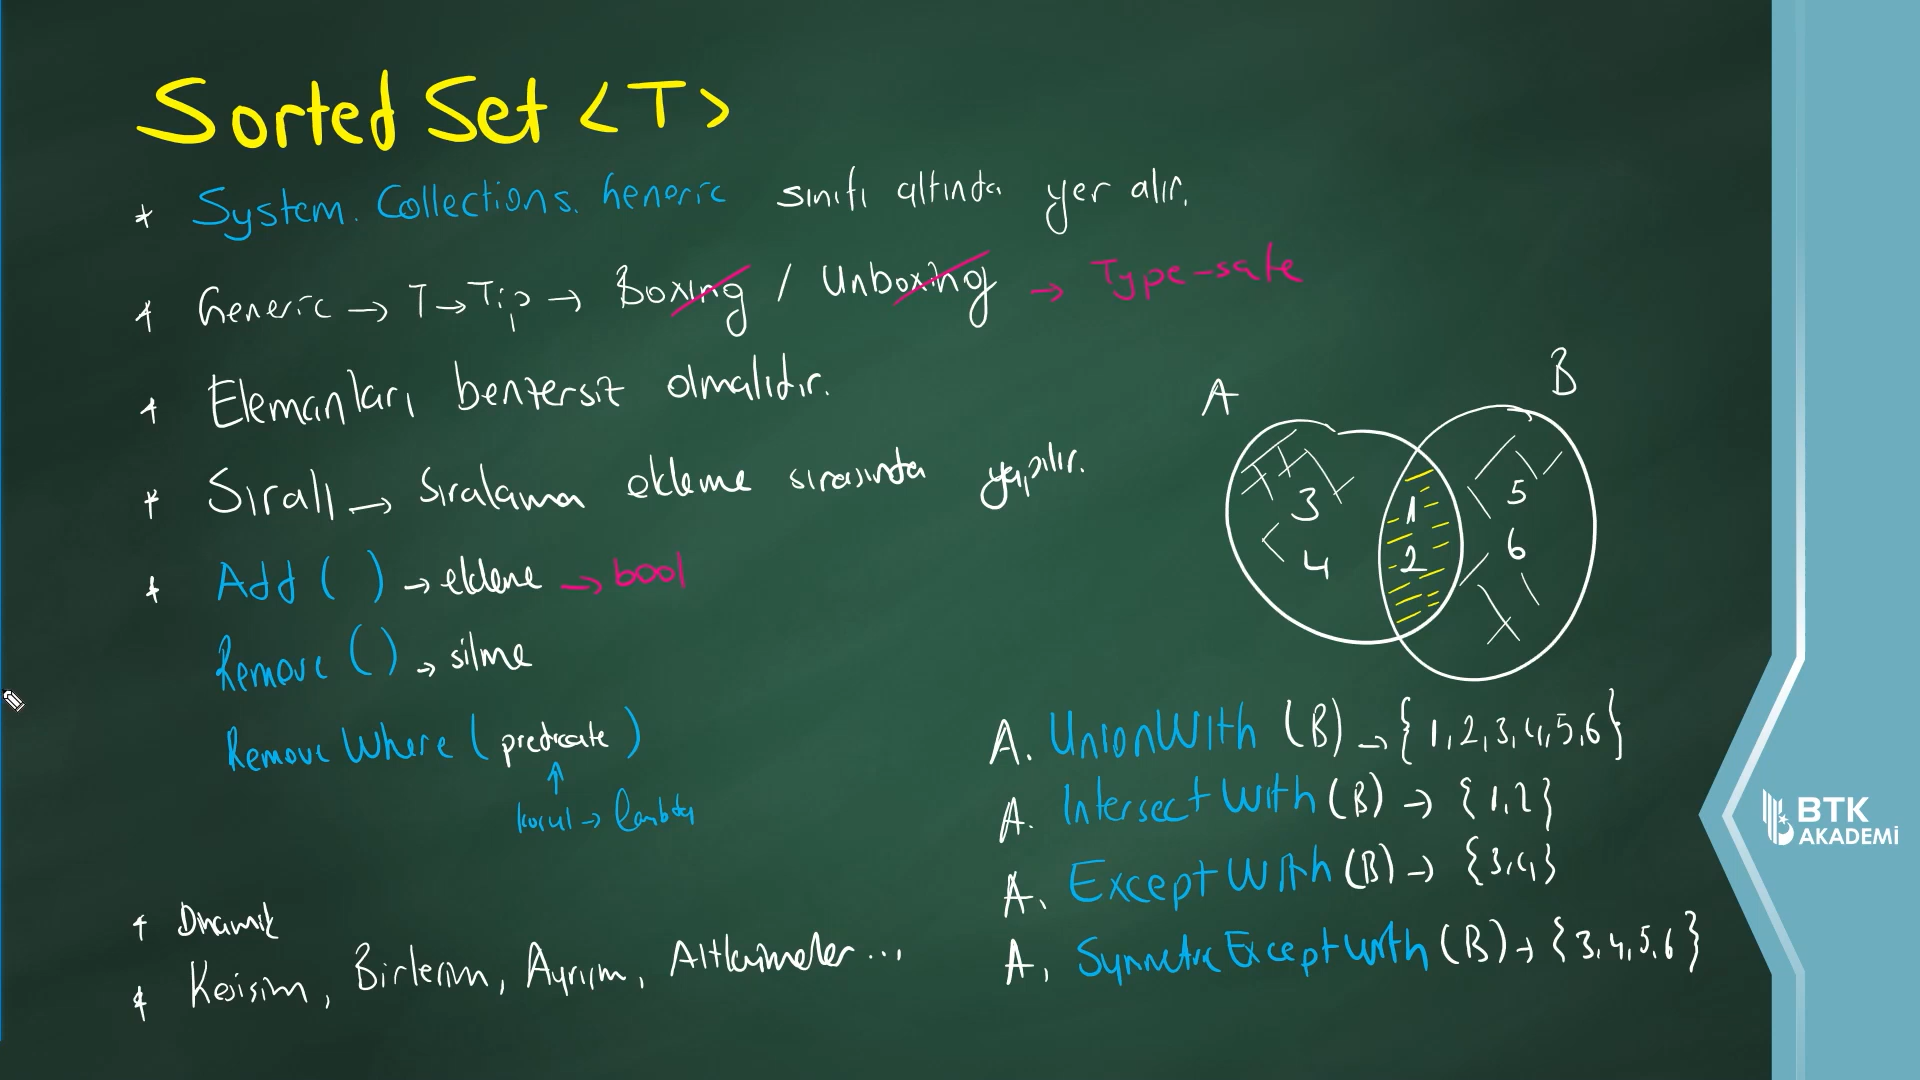 Sorted Set <T>
* System.Collections.Generic sınıfı altında yer alır.
* Generic → T → Tip → Boxing / Unboxing → Type-safe
* Elemanları benzersiz olmalıdır.
* Sıralı → Sıralama ekleme sırasında yapılır.
* Add ( ) → ekleme → bool
Remove ( ) → silme
Remove Where ( predicate )
↑
koşul → lambda
* Dinamik
* Kesişim, Birleşim, Ayrım, Altkümeler...
A B
3 1 5
4 2 6
A. UnionWith (B) → {1,2,3,4,5,6}
A. IntersectWith (B) → {1,2}
A. ExceptWith (B) → {3,4}
A. SymmetricExceptWith (B) → {3,4,5,6}
BTK
AKADEMİ